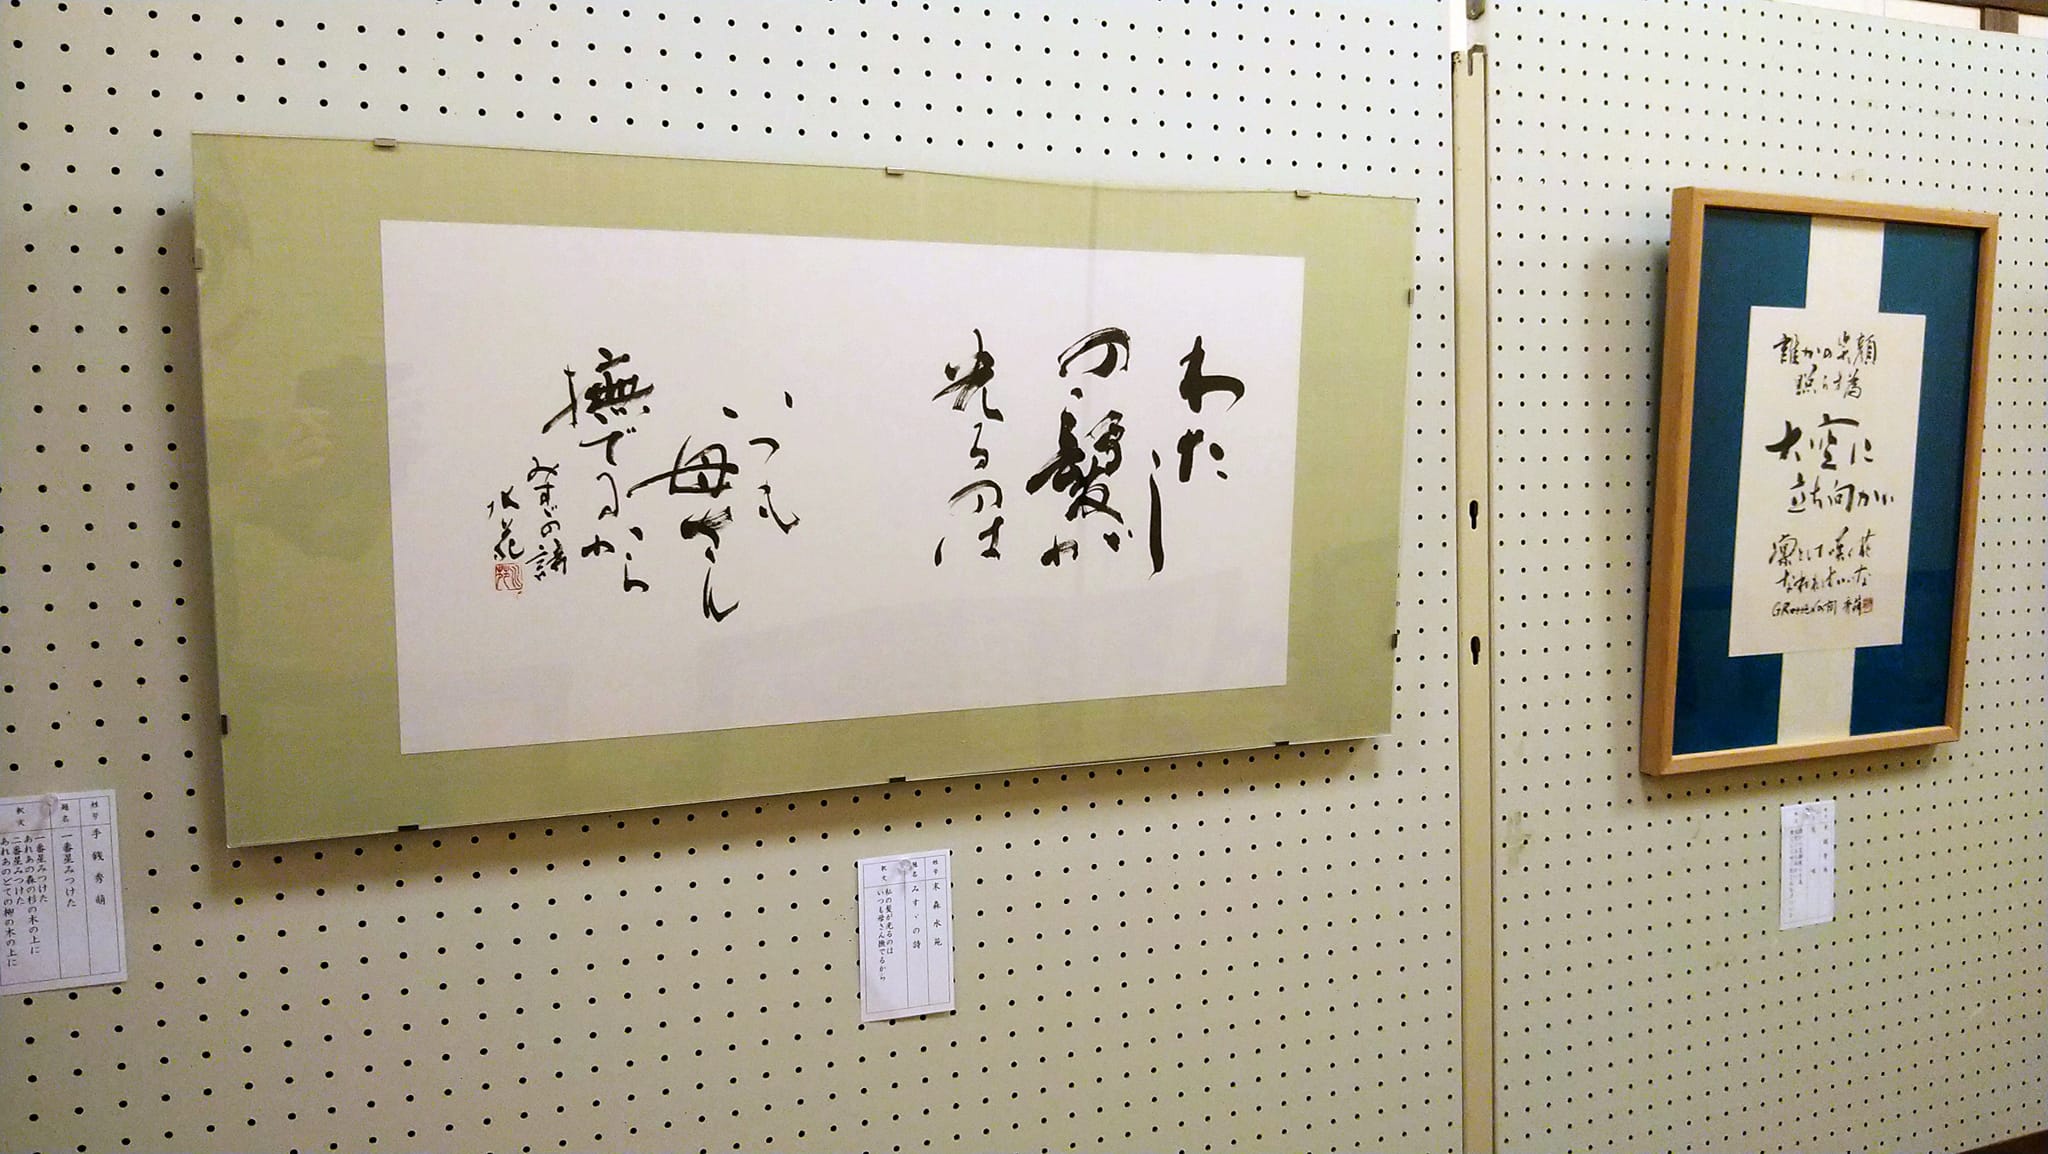 わたし
の髪が
光るのは
いつも
母さん
撫でるから
みすゞの詩
水苑
誰かの笑顔
照らす為
大空に
立ち向かい
凛として咲く花
なれればいいな
姓号 手銭秀萌
題名 一番星みつけた
釈文 一番星みつけた
あれあの森の杉の木の上に
二番星みつけた
あれあのどての柳の木の上に
姓号 末森水苑
題名 みすゞの詩
釈文 私の髪が光るのは
いつも母さん撫でるから